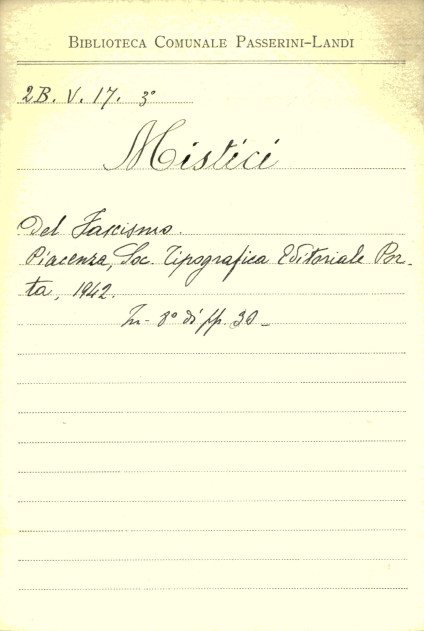 BIBLIOTECA COMUNALE PASSERINI-LANDI
2B. V. 17. 3°
Mistici
Del Fascismo.
Piacenza, Soc. Tipografica Editoriale Por-
ta, 1942.
In-8° di pp. 30_